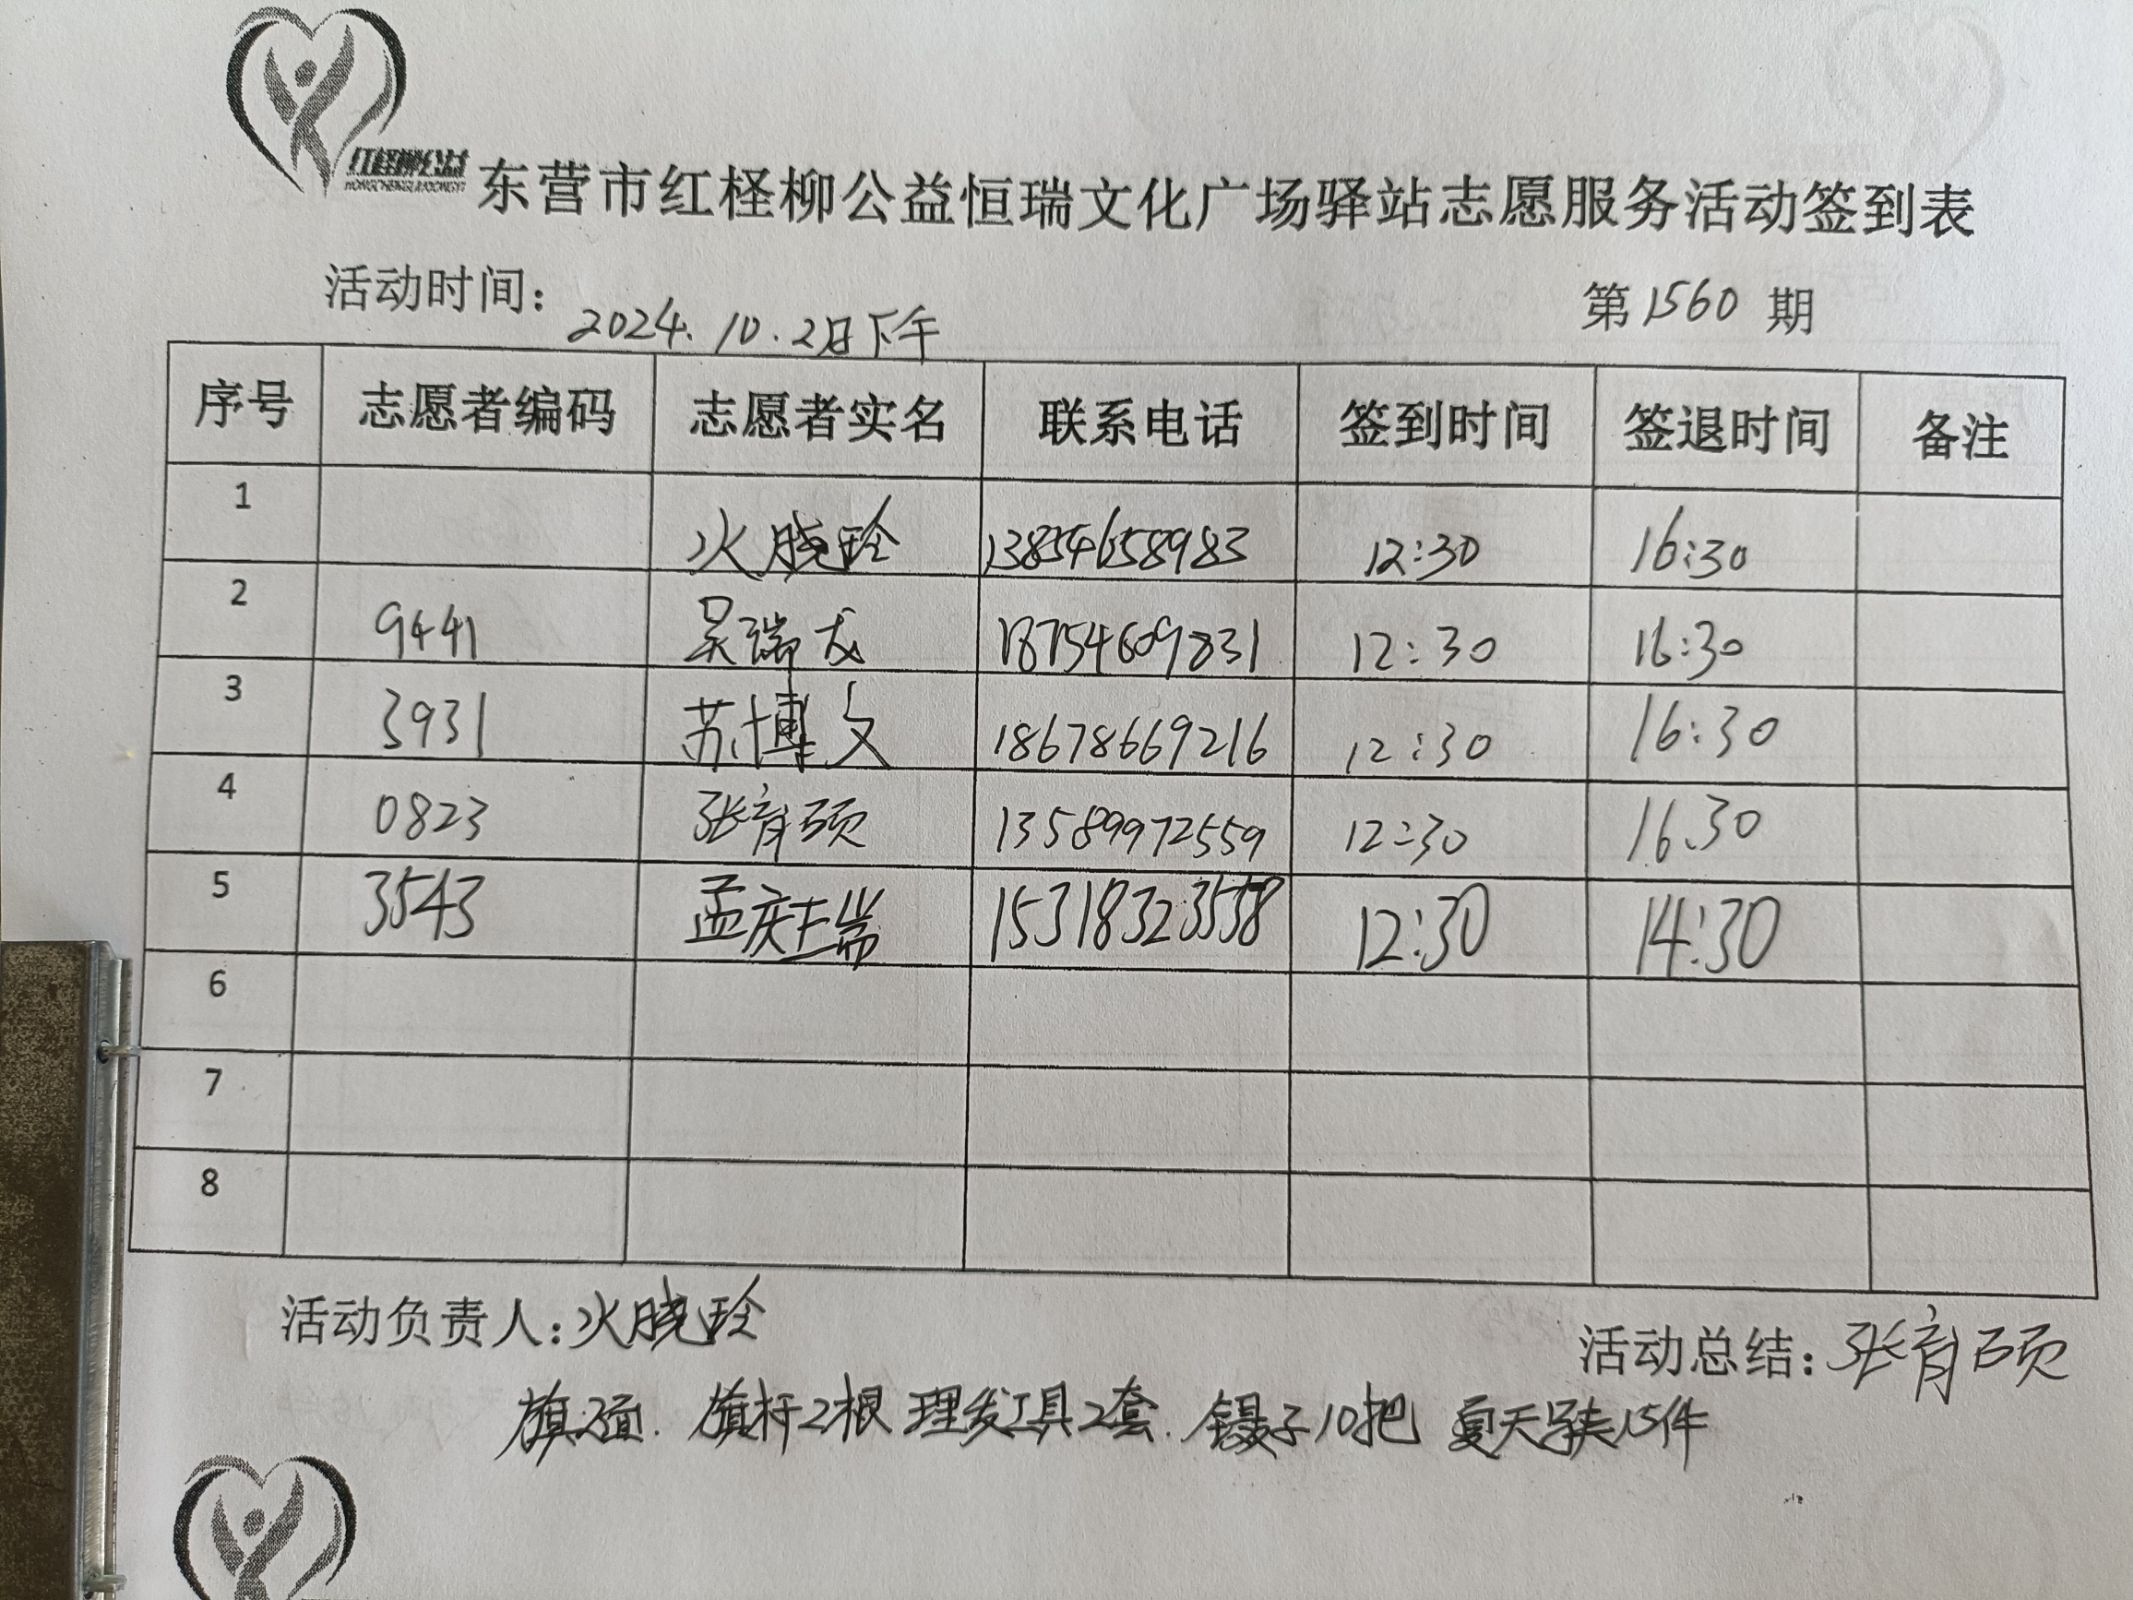 红柽柳公益
HONGCHENGLIUGONGYI
东营市红柽柳公益恒瑞文化广场驿站志愿服务活动签到表
活动时间：2024.10.2日下午 第1560期
序号 志愿者编码 志愿者实名 联系电话 签到时间 签退时间 备注
1 火晓玲 13854658983 12:30 16:30
2 9441 吴瑞龙 18754609831 12:30 16:30
3 3931 苏博文 18678669216 12:30 16:30
4 0823 张育硕 13589972559 12:30 16.30
5 3543 孟庆瑞 15318323558 12:30 14:30
6
7
8
活动负责人：火晓玲 活动总结：张育硕
旗2面. 旗杆2根 理发工具2套. 镊子10把 夏天 15件